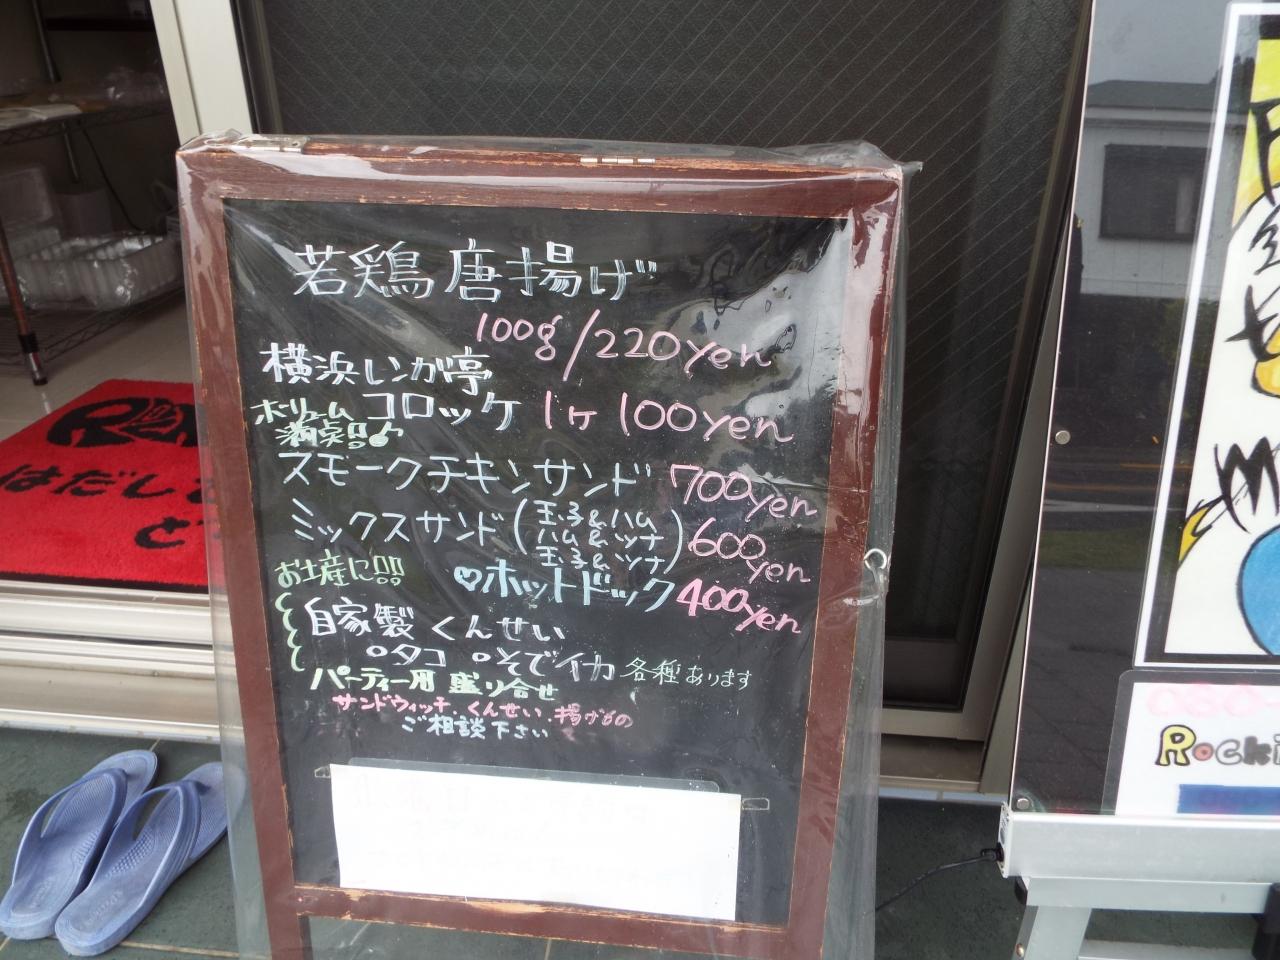 若鶏唐揚げ
100g/220yen
横浜レンガ亭
コロッケ 1ヶ 100yen
ボリューム
満点!!
スモークチキンサンド 700yen
ミックスサンド(玉子&ハム
ハム&ツナ
玉子&ツナ) 600yen
お土産に!!
♡ホットドック 400yen
自家製 くんせい
タコ そでイカ 各種あります
パーティー用 盛り合せ
サンドウィッチ・くんせい・揚げもの
ご相談下さい
はだしで
Rocki